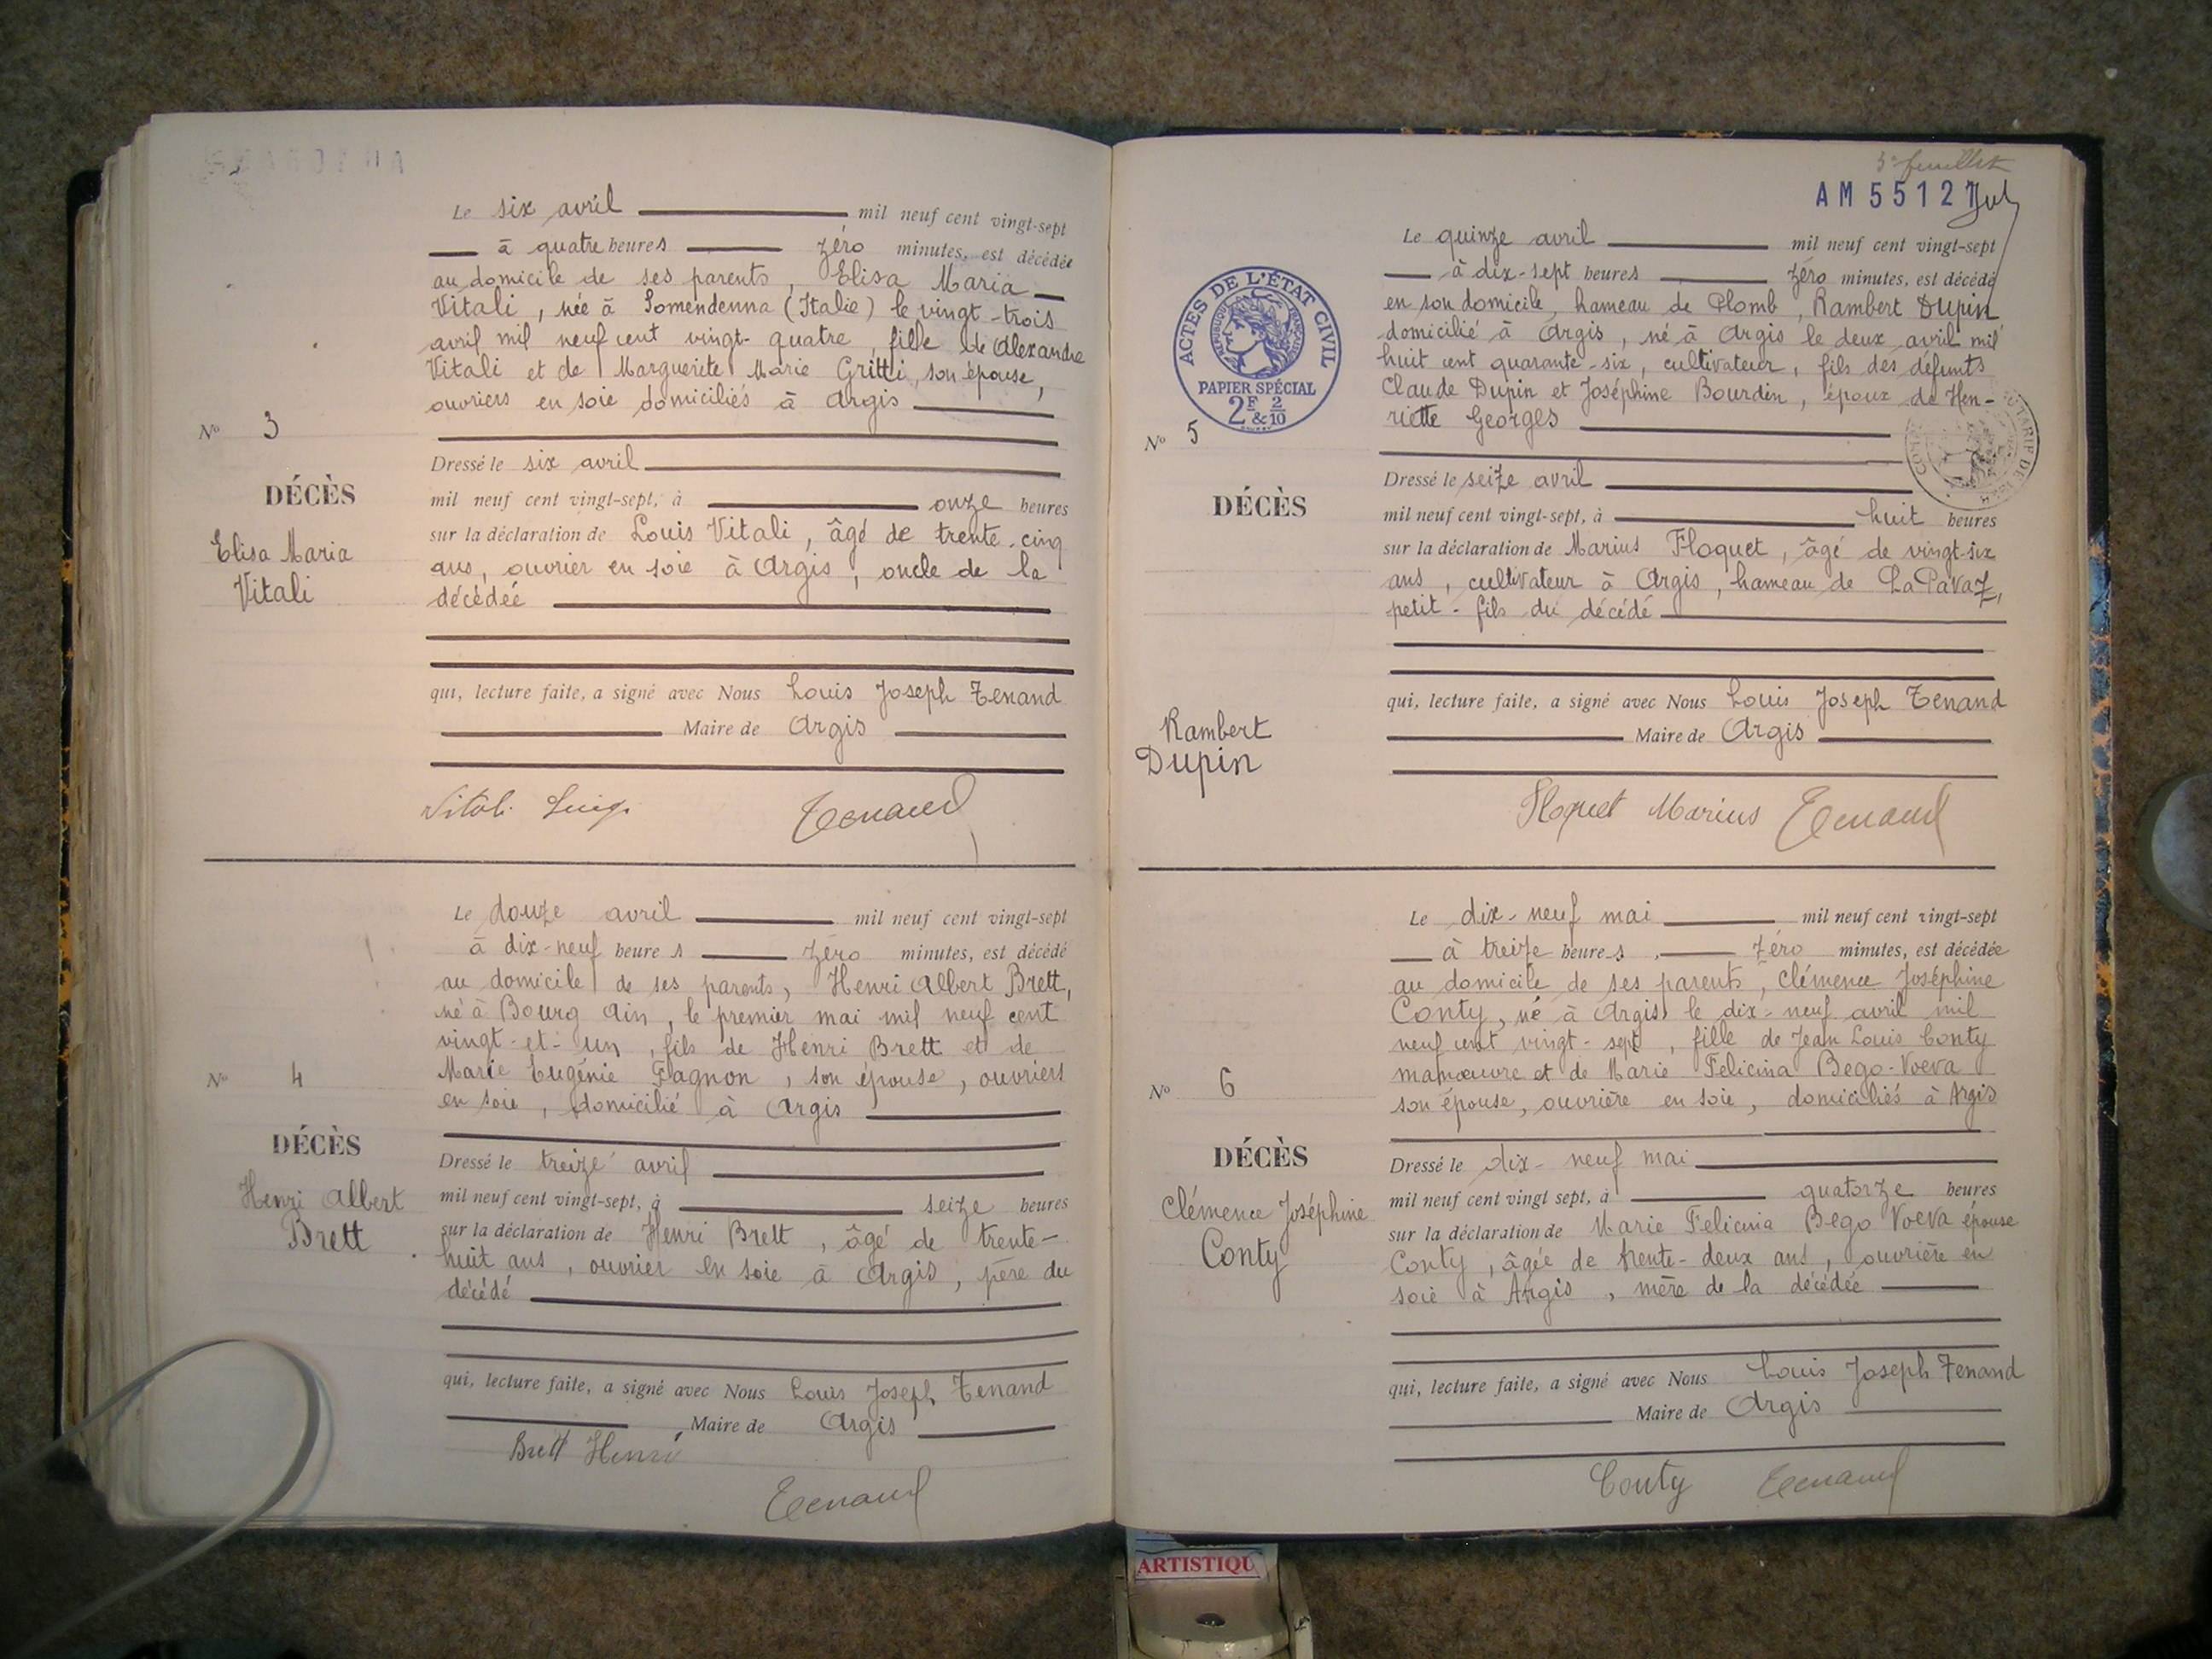 Le six avril mil neuf cent vingt-sept
à quatre heures zéro minutes, est décédée
au domicile de ses parents, Elisa Maria
Vitali, née à Somendenna (Italie) le vingt-trois
avril mil neuf cent vingt-quatre, fille de Alexandre
Vitali et de Marguerite Marie Gritti, son épouse,
ouvriers en soie domiciliés à Argis
N° 3
DÉCÈS
Elisa Maria
Vitali
Dressé le six avril
mil neuf cent vingt-sept, à onze heures
sur la déclaration de Louis Vitali, âgé de trente-cinq
ans, ouvrier en soie à Argis, oncle de la
décédée
qui, lecture faite, a signé avec Nous Louis Joseph Tenand
Maire de Argis
Vitali Luigi Tenand
Le douze avril mil neuf cent vingt-sept
à dix-neuf heures zéro minutes, est décédé
au domicile de ses parents, Henri Albert Brett,
né à Bourg Ain, le premier mai mil neuf cent
vingt-et-un, fils de Henri Brett et de
Marie Eugénie Fagnon, son épouse, ouvriers
en soie, domicilié à Argis
N° 4
DÉCÈS
Henri Albert
Brett
Dressé le treize avril
mil neuf cent vingt-sept, à seize heures
sur la déclaration de Henri Brett, âgé de trente-
huit ans, ouvrier en soie à Argis, père du
décédé
qui, lecture faite, a signé avec Nous Louis Joseph Tenand
Maire de Argis
Brett Henri
Tenand
3e feuillet
AM 55127
ACTES DE L'ÉTAT CIVIL
RÉPUBLIQUE FRANÇAISE
PAPIER SPÉCIAL
2F & 2/10
Le quinze avril mil neuf cent vingt-sept
à dix-sept heures zéro minutes, est décédé
en son domicile, hameau de Plomb, Rambert Dupin
domicilié à Argis, né à Argis le deux avril mil
huit cent quarante-six, cultivateur, fils des défunts
Claude Dupin et Joséphine Bourdin, époux de Hen-
riette Georges
N° 5
DÉCÈS
Rambert
Dupin
Dressé le seize avril
mil neuf cent vingt-sept, à huit heures
sur la déclaration de Marius Floquet, âgé de vingt-six
ans, cultivateur à Argis, hameau de La Pavaz,
petit-fils du décédé
qui, lecture faite, a signé avec Nous Louis Joseph Tenand
Maire de Argis
Floquet Marius Tenand
Le dix-neuf mai mil neuf cent vingt-sept
à treize heures, zéro minutes, est décédée
au domicile de ses parents, Clémence Joséphine
Conty, né à Argis le dix-neuf avril mil
neuf cent vingt-sept, fille de Jean Louis Conty
manœuvre et de Marie Felicina Bego-Voeva
son épouse, ouvrière en soie, domiciliés à Argis
N° 6
DÉCÈS
Clémence Joséphine
Conty
Dressé le dix-neuf mai
mil neuf cent vingt sept, à quatorze heures
sur la déclaration de Marie Felicina Bego Voeva épouse
Conty, âgée de trente-deux ans, ouvrière en
soie à Argis, mère de la décédée
qui, lecture faite, a signé avec Nous Louis Joseph Tenand
Maire de Argis
Conty Tenand
ARTISTIQU